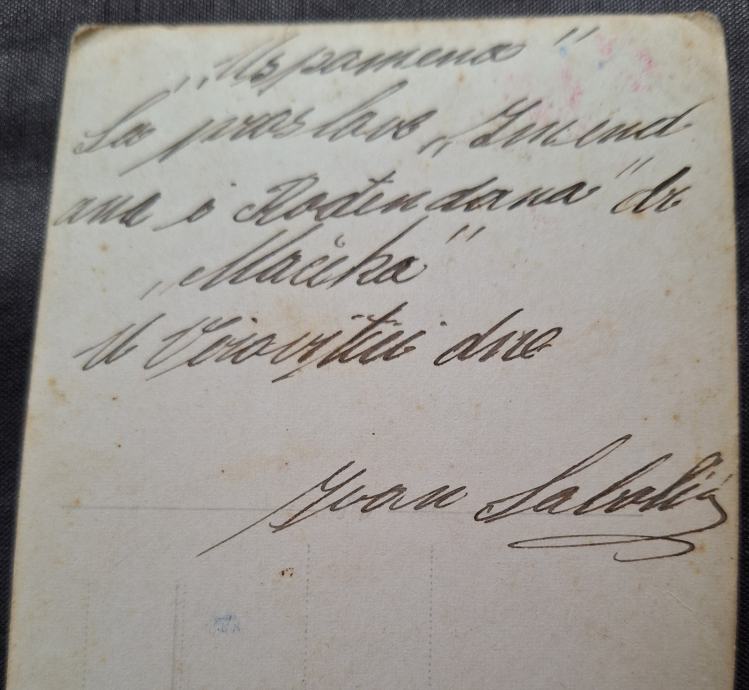 „Uspomena"
Sa proslave „Imend
ana i Rođendana" dr
„Mačika"
U Virovitici dne
Ivan Sabolić